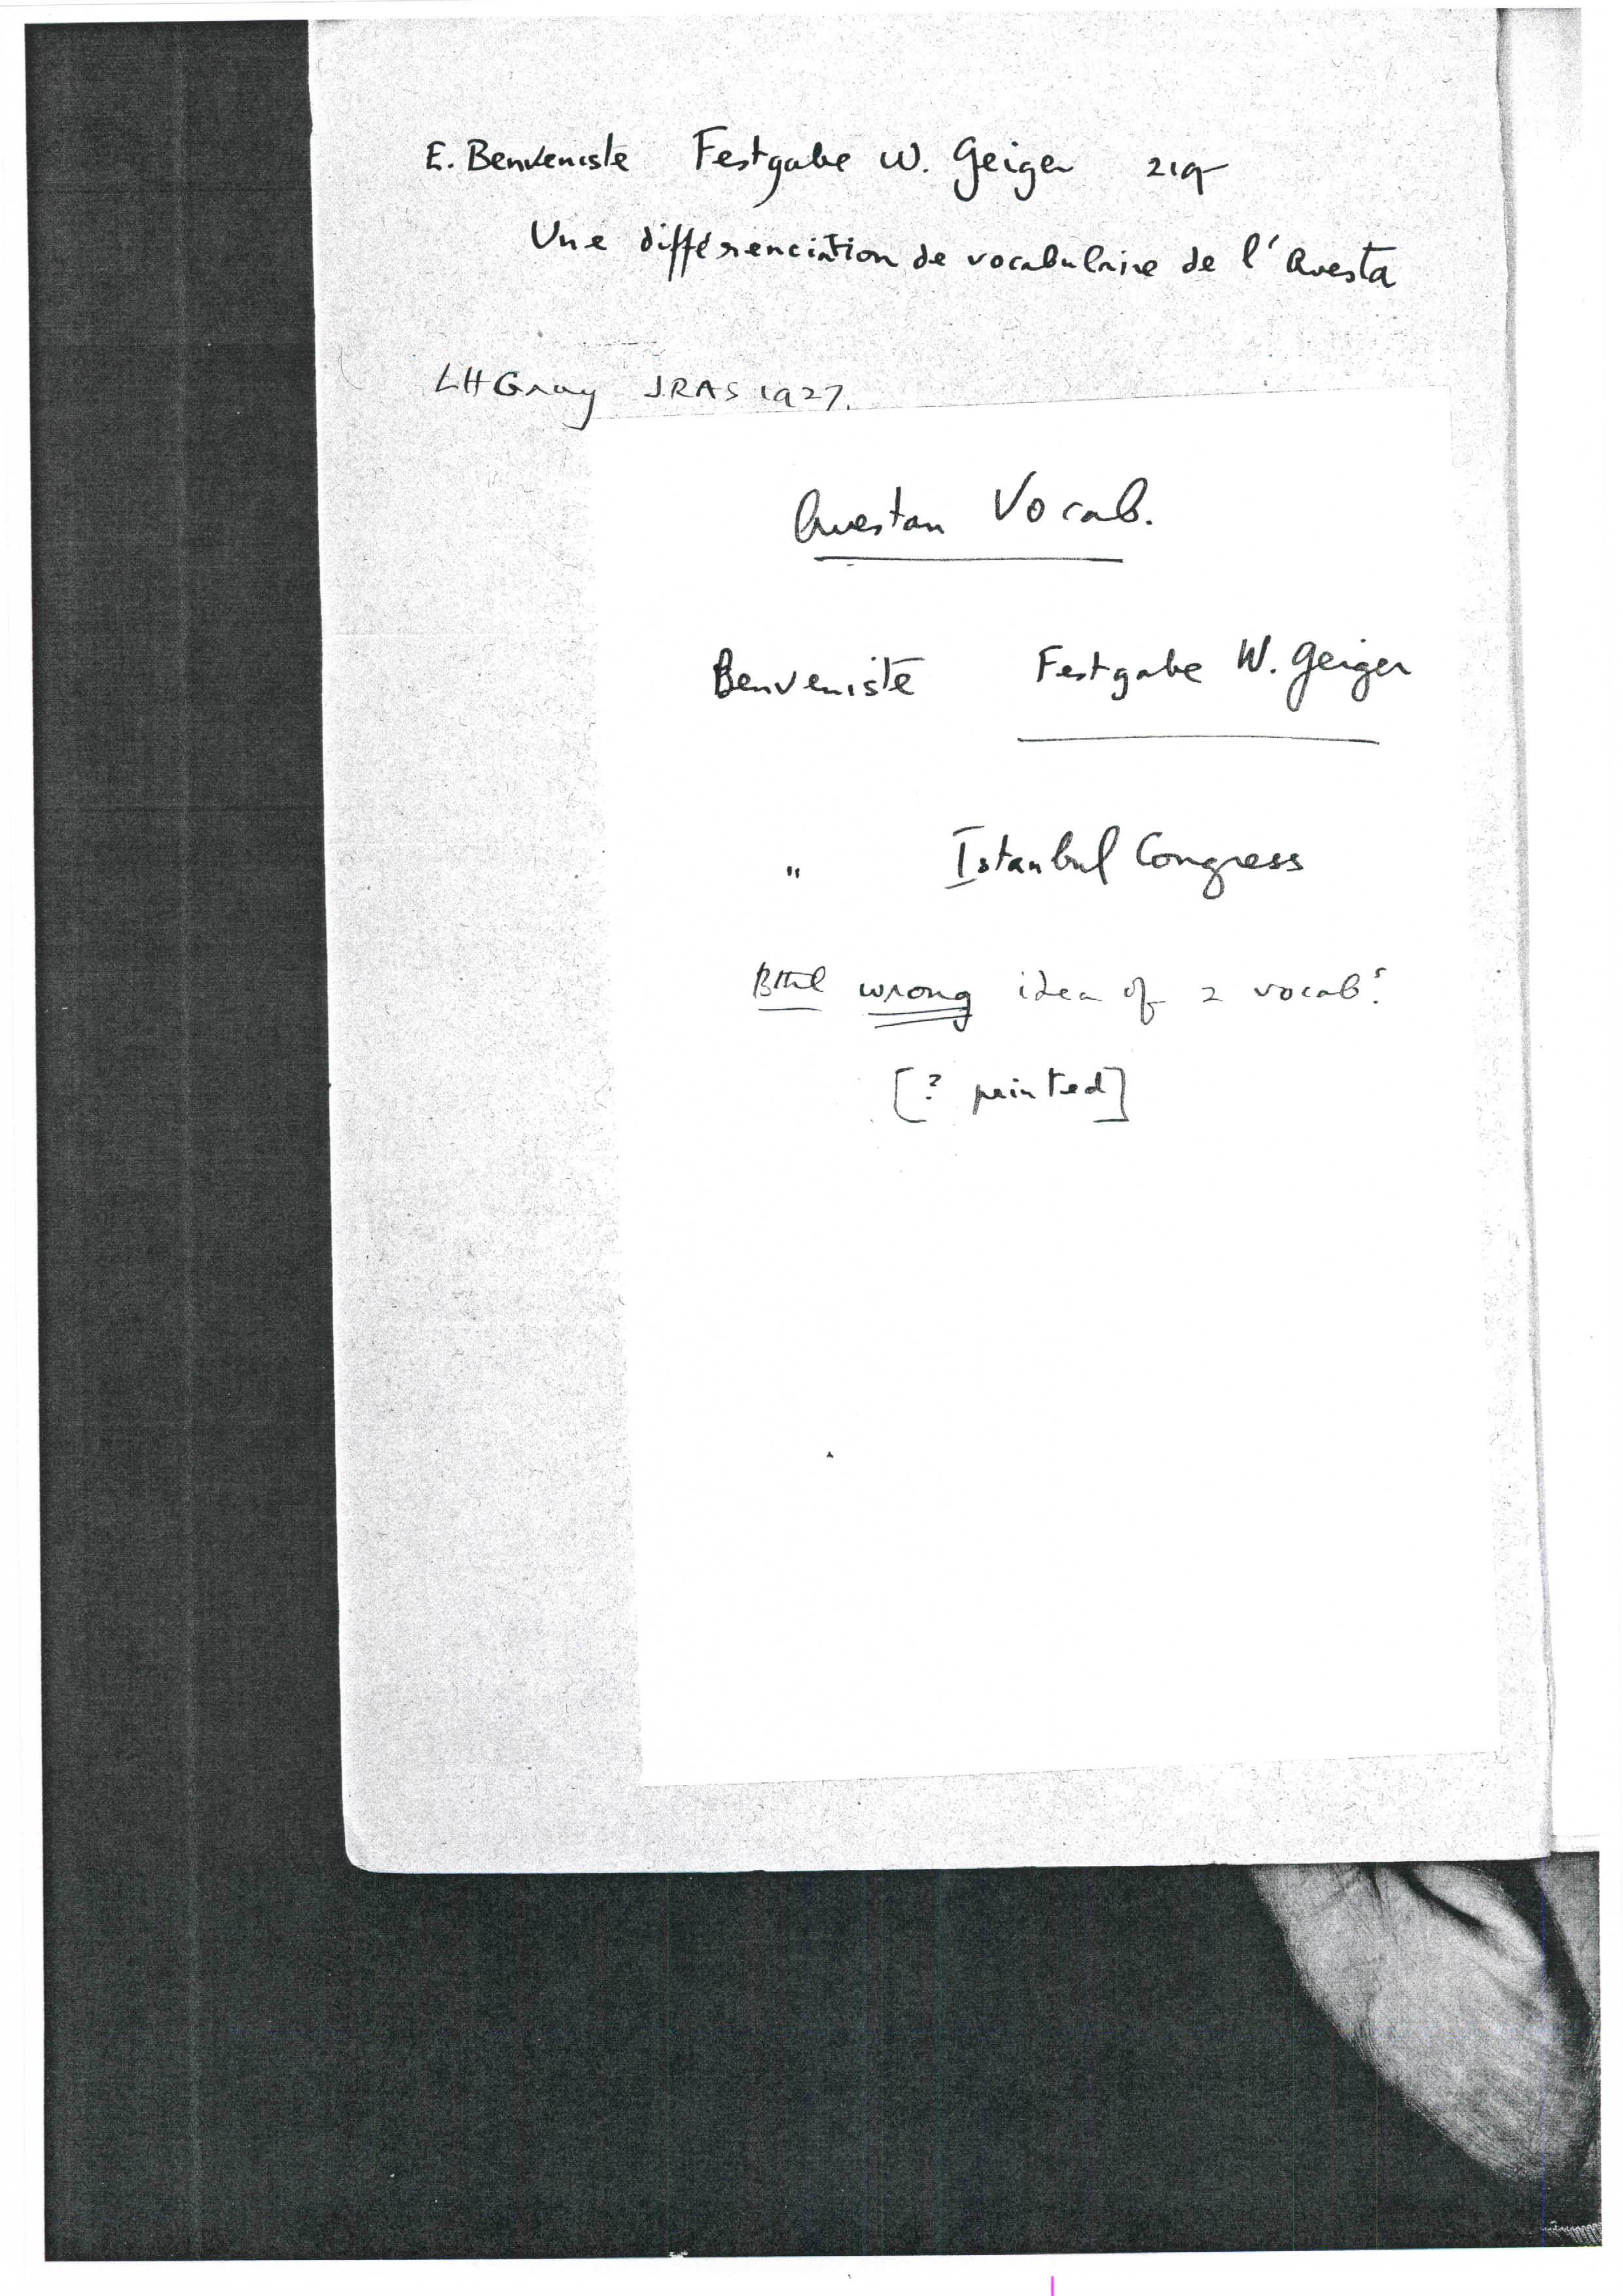 E. Benveniste Festgabe W. Geiger 219
Une différenciation de vocabulaire de l'Avesta
LHGray JRAS 1927.
Avestan Vocab.
Benveniste Festgabe W. Geiger
" Istanbul Congress
Bthl wrong idea of 2 vocabs.
[? printed]